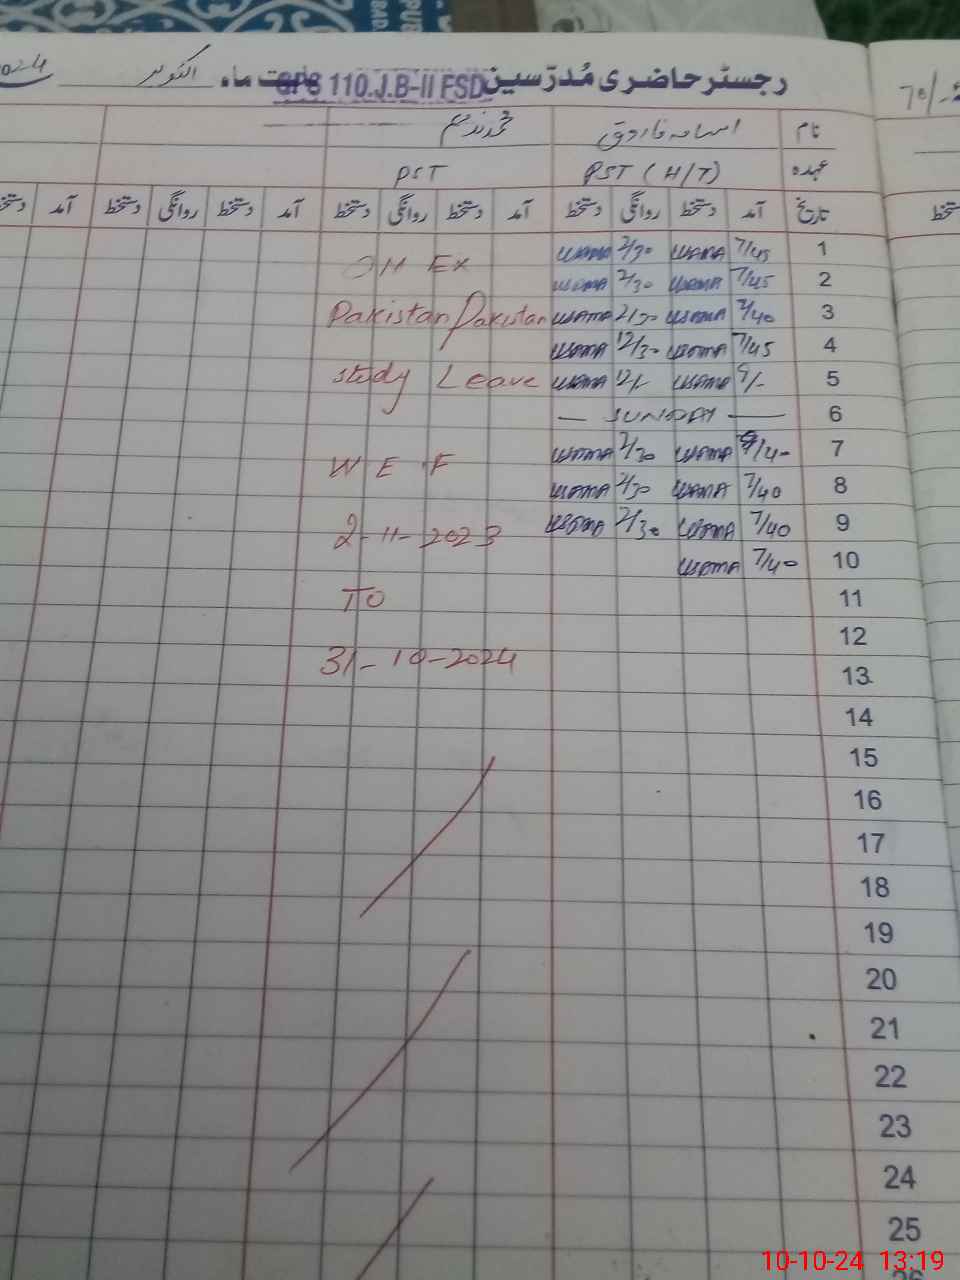 رجسٹر حاضری مُدرّسین GPS 110.J.B-II FSD بابت ماہ اکتوبر 2024
نام اسامہ فاروق محمد ندیم
عہدہ PST (H/T) PST
تاریخ آمد دستخط روانگی دستخط آمد دستخط روانگی دستخط آمد دستخط روانگی دستخط آمد دستخط
1 7/45 USAMA 2/30 USAMA
2 7/45 USAMA 2/30 USAMA
3 7/40 USAMA 2/30 USAMA Pakistan Pakistan
4 7/45 USAMA 12/30 USAMA
5 9/- USAMA 12/- USAMA Study Leave
6 — SUNDAY —
7 USAMA 2/30 USAMA W E F
8 7/40 USAMA 2/30 USAMA
9 7/40 USAMA 2/30 USAMA 2-11-2023
10 7/40 USAMA
11 TO
12
13 31-10-2024
14
15
16
17
18
19
20
21
22
23
24
25
10-10-24 13:19